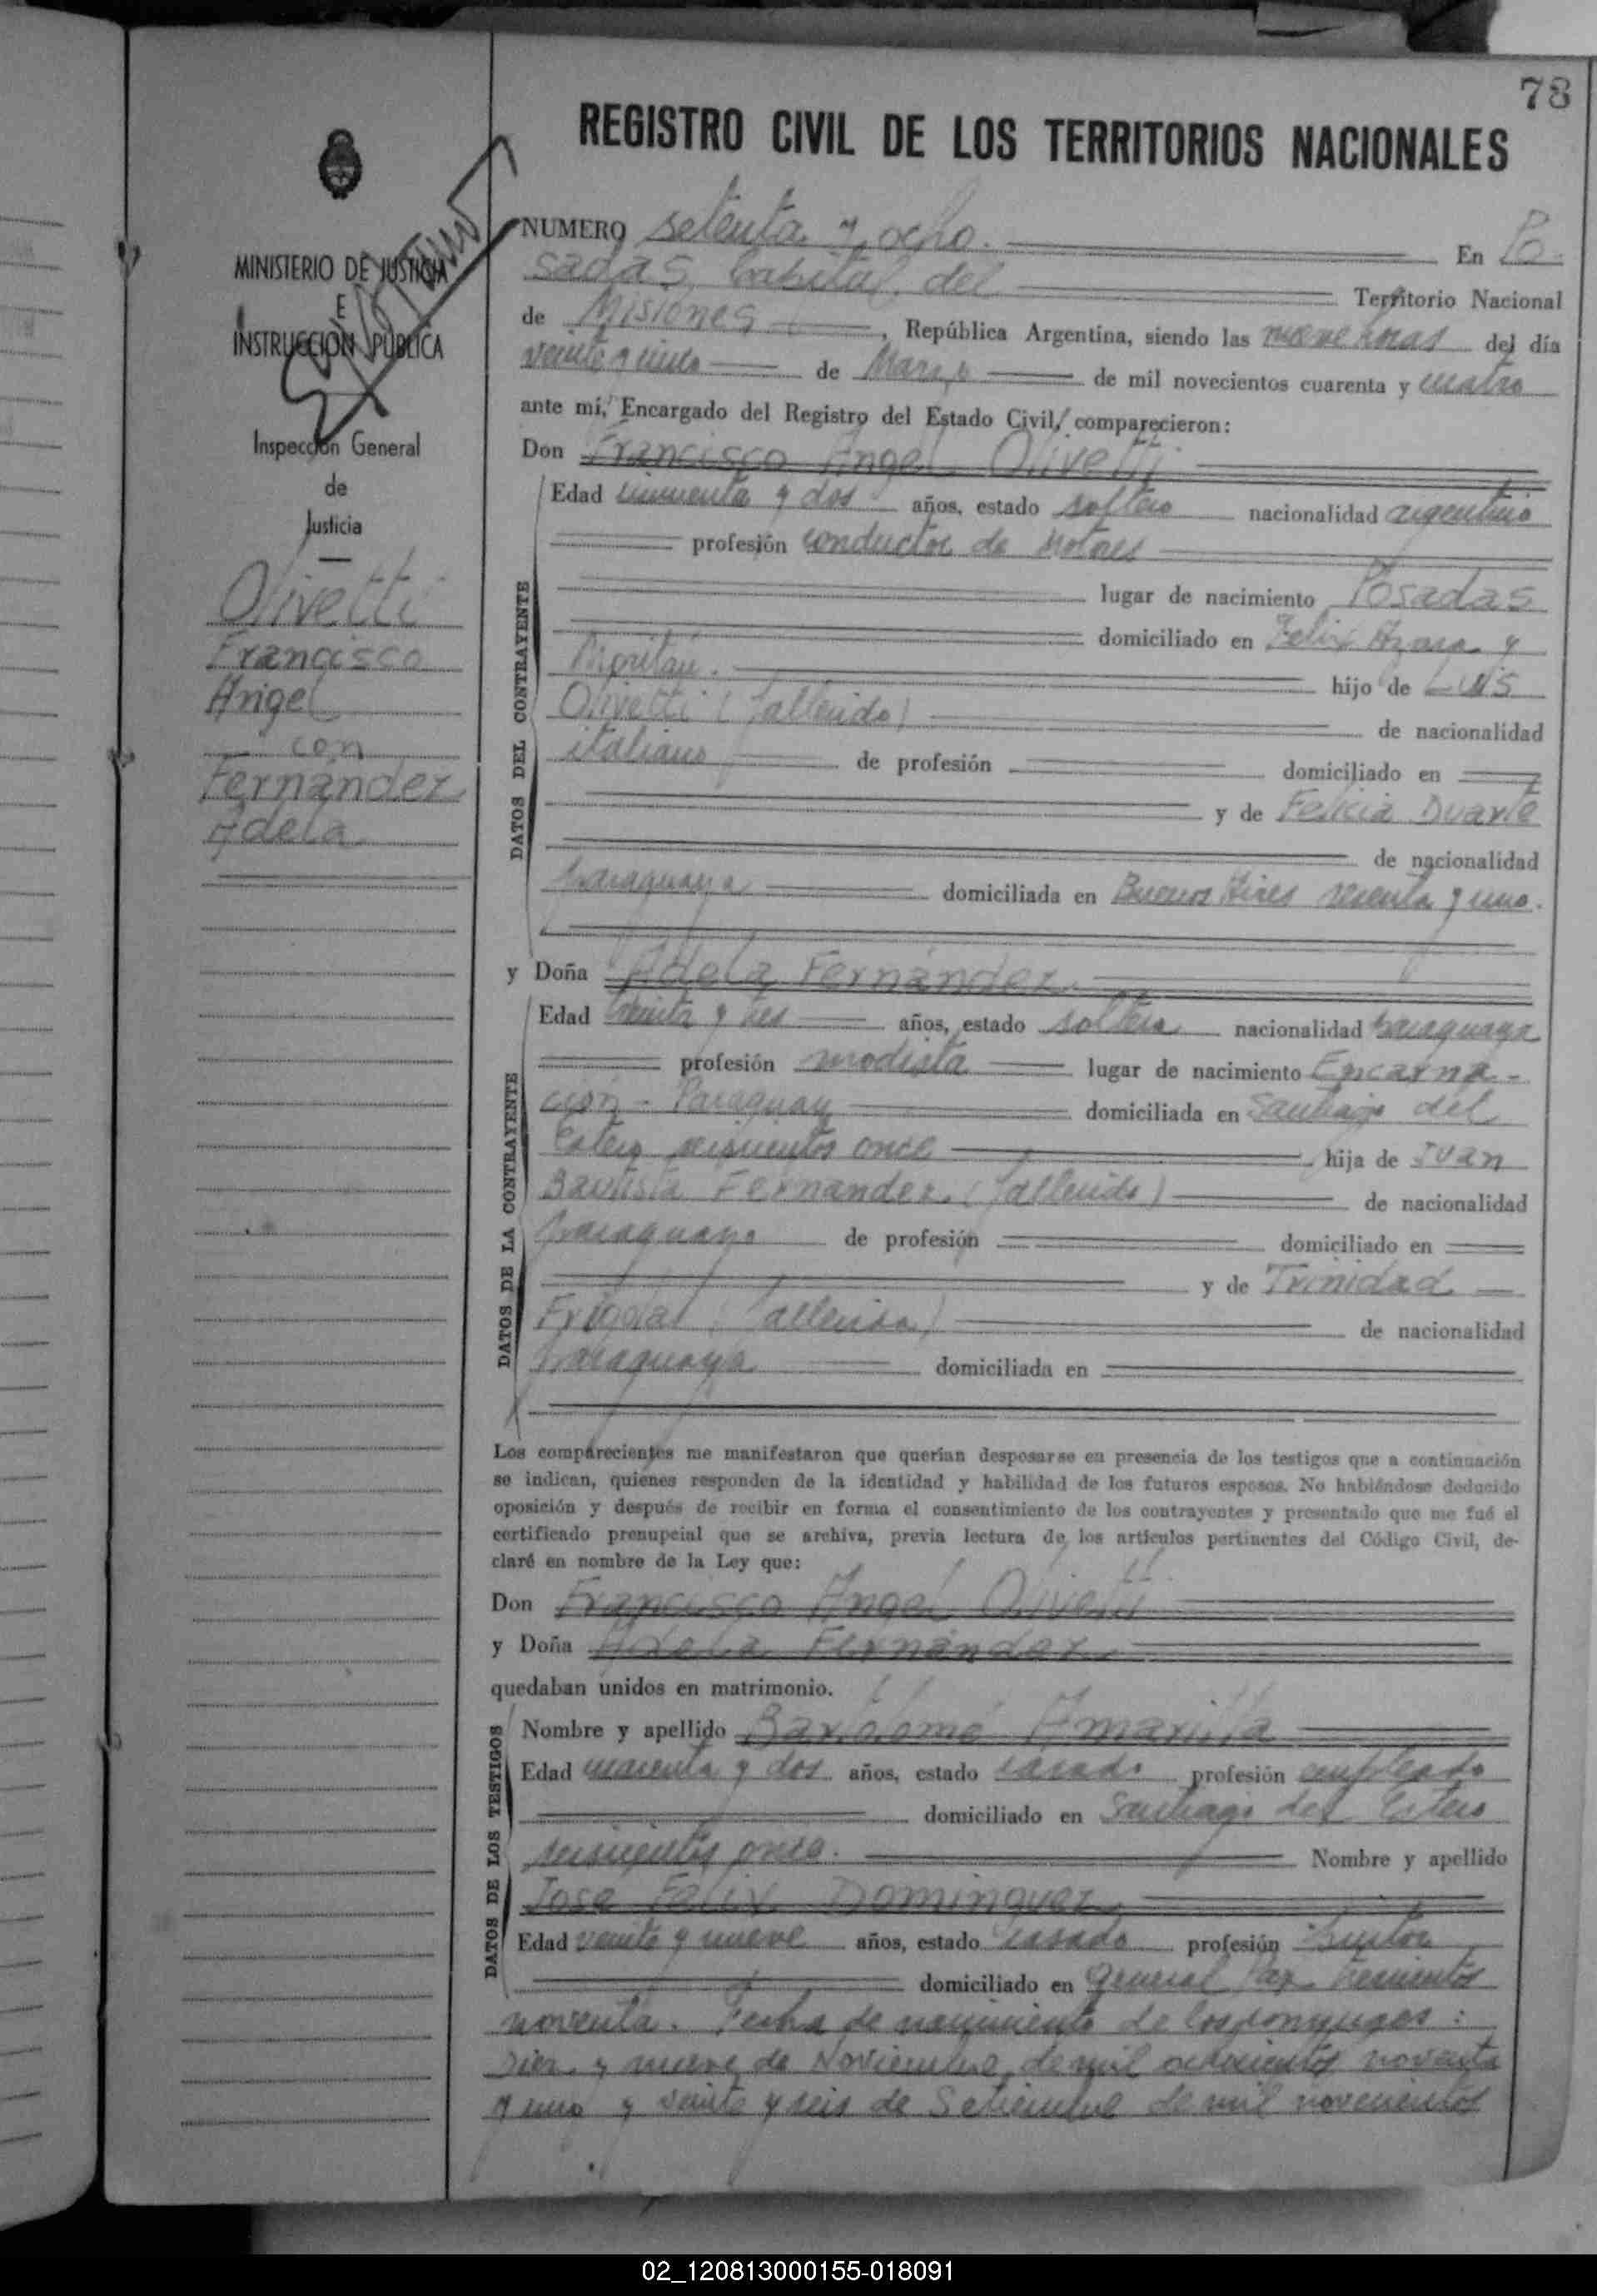 78
REGISTRO CIVIL DE LOS TERRITORIOS NACIONALES
MINISTERIO DE JUSTICIA
E
INSTRUCCION PUBLICA
Inspección General
de
Justicia
Olivetti
Francisco
Angel
con
Fernández
Adela
NUMERO setenta y ocho. En Po-
sadas, Capital del Territorio Nacional
de Misiones, República Argentina, siendo las nueve horas del día
veinte y cinco de Marzo de mil novecientos cuarenta y cuatro
ante mí, Encargado del Registro del Estado Civil, comparecieron:
Don Francisco Angel Olivetti
DATOS DEL CONTRAYENTE
Edad cincuenta y dos años, estado soltero nacionalidad argentino
profesión conductor de motores
lugar de nacimiento Posadas
domiciliado en Felix Azara y
hijo de Luis
Olivetti (fallecido) de nacionalidad
italiano de profesión domiciliado en
y de Felicia Duarte
de nacionalidad
paraguaya domiciliada en Buenos Aires sesenta y uno.
y Doña Adela Fernández
DATOS DE LA CONTRAYENTE
Edad y tres años, estado soltera nacionalidad paraguaya
profesión modista lugar de nacimiento Encarna-
ción - Paraguay domiciliada en Santiago del
Estero seiscientos once hija de Juan
Bautista Fernandez (fallecido) de nacionalidad
paraguayo de profesión domiciliado en
y de Trinidad
(fallecida) de nacionalidad
paraguaya domiciliada en
Los comparecientes me manifestaron que querían desposarse en presencia de los testigos que a continuación
se indican, quienes responden de la identidad y habilidad de los futuros esposos. No habiéndose deducido
oposición y después de recibir en forma el consentimiento de los contrayentes y presentado que me fué el
certificado prenupcial que se archiva, previa lectura de los artículos pertinentes del Código Civil, de-
claré en nombre de la Ley que:
Don Francisco Angel Olivetti
y Doña Adela Fernández
quedaban unidos en matrimonio.
DATOS DE LOS TESTIGOS
Nombre y apellido Bartolomé Amarilla
Edad cuarenta y dos años, estado casado profesión empleado
domiciliado en Santiago del Estero
seiscientos once. Nombre y apellido
Jose Felix Dominguez
Edad veinte y nueve años, estado casado profesión pintor
domiciliado en General Paz trescientos
noventa. Fecha de nacimiento de los conyuges:
diez y nueve de Noviembre de mil ochocientos noventa
y uno y veinte y seis de Setiembre de mil novecientos
02_120813000155-018091